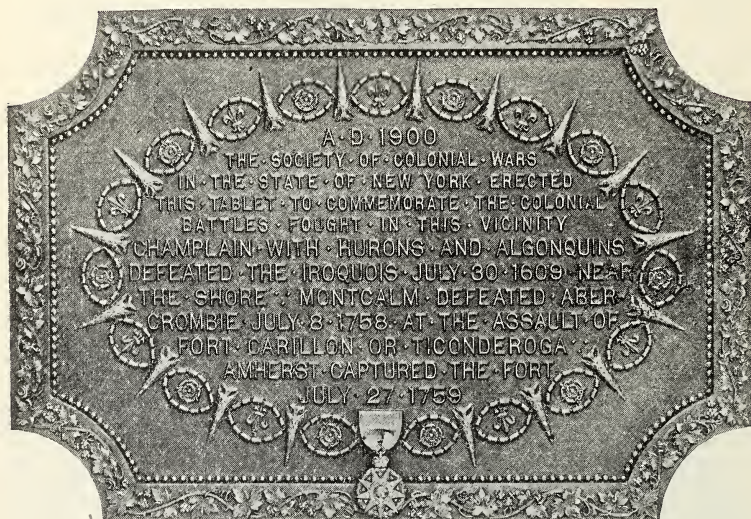 A·D·1900
THE·SOCIETY·OF·COLONIAL·WARS
IN·THE·STATE·OF·NEW·YORK·ERECTED
THIS·TABLET·TO·COMMEMORATE·THE·COLONIAL
BATTLES·FOUGHT·IN·THIS·VICINITY
CHAMPLAIN·WITH·HURONS·AND·ALGONQUINS
DEFEATED·THE·IROQUOIS·JULY·30·1609·NEAR
THE·SHORE·:·MONTCALM·DEFEATED·ABER-
CROMBIE·JULY·8·1758·AT·THE·ASSAULT·OF
FORT·CARILLON·OR·TICONDEROGA·:·
AMHERST·CAPTURED·THE·FORT
JULY·27·1759